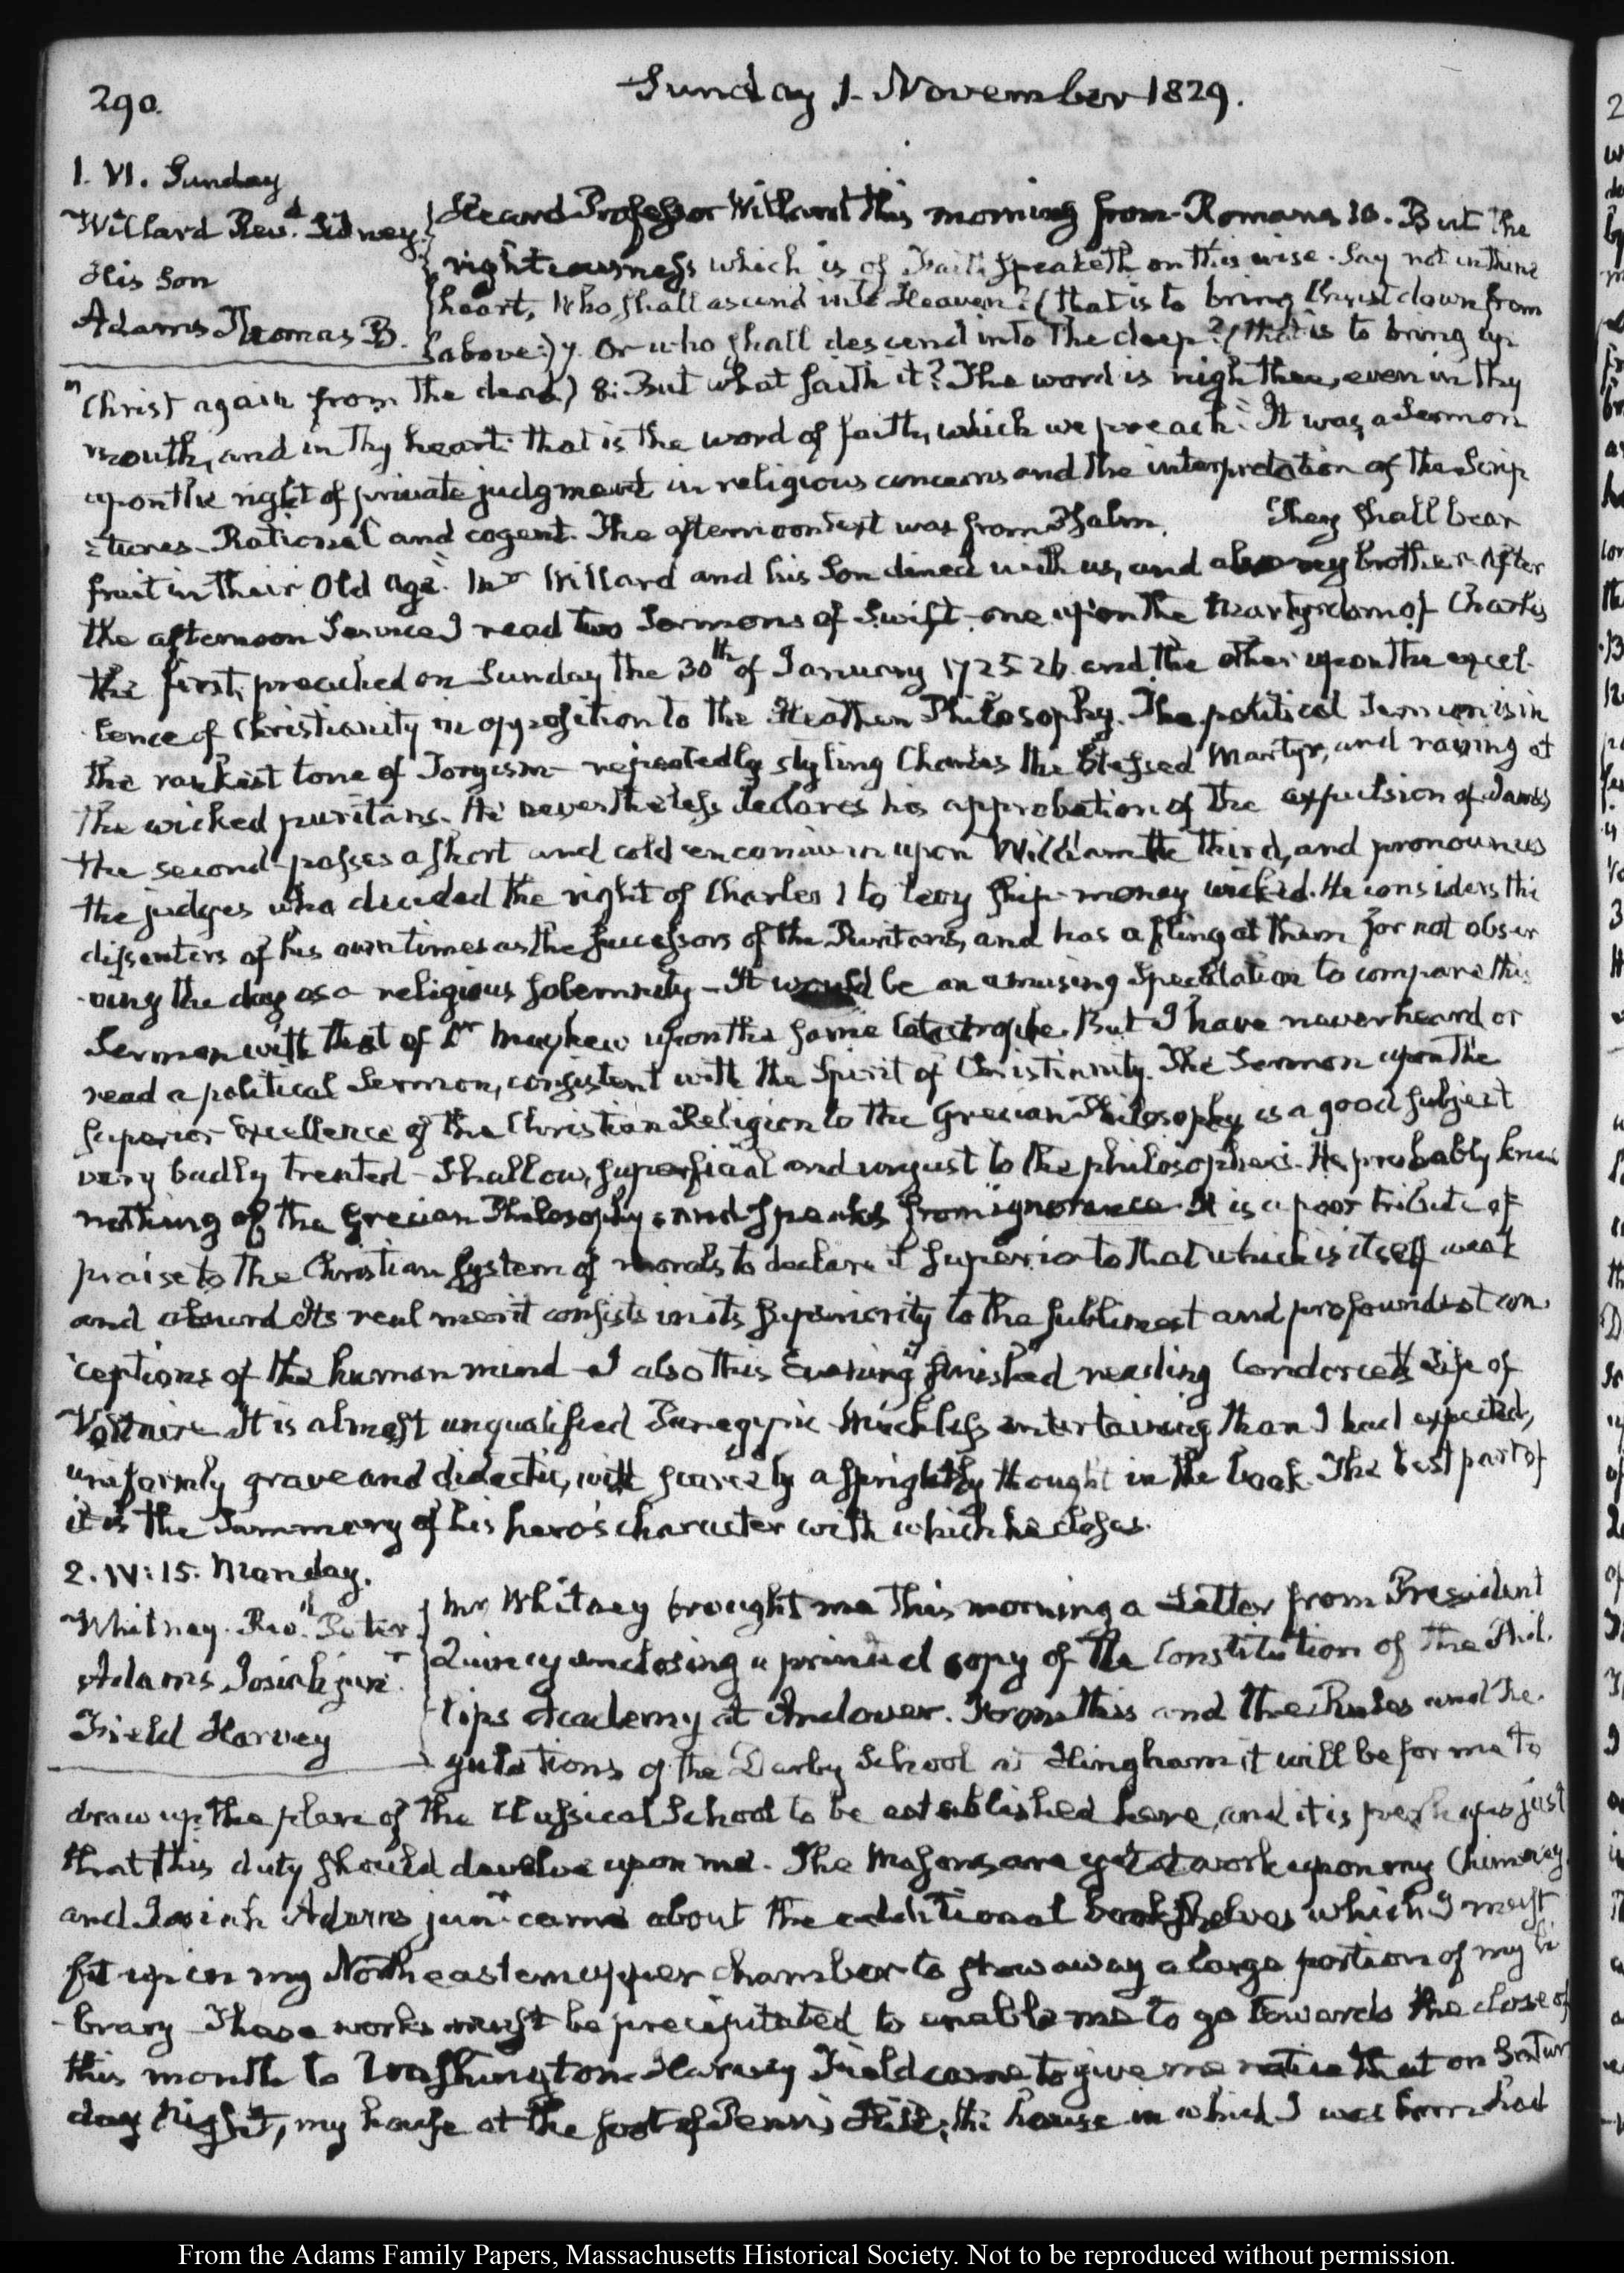 290.
Sunday 1. November 1829.
1. VI. Sunday
Willard Revd. Sidney.
His Son
Adams Thomas B.
Heard Professor Willard this morning from Romans 10. But the
righteousness which is of Faith speaketh on this wise. Say not in thine
heart, Who shall ascend into Heaven? (that is to bring Christ down from
above:) 7. Or who shall descend into the deep? (that is to bring up
Christ again from the dead) 8: But what saith it? The word is nigh thee, even in thy
mouth, and in thy heart: that is the word of faith, which we preach. It was a Sermon
upon the right of private judgment in religious concerns and the interpretation of the Scrip
:tures. Rational and cogent. The afternoon text was from Psalm. They shall bear
fruit in their Old age. Mr Willard and his Son dined with us, and also my brother. After
the afternoon Service I read two Sermons of Swift. one upon the Martyrdom of Charles
the first, preached on Sunday the 30th of January 1725 26. and the other upon the excel-
lence of Christianity in opposition to the Heathen Philosophy. The political Sermon is in
the rankest tone of Toryism—repeatedly styling Charles the blessed Martyr, and raving at
the wicked puritans. He nevertheless declares his approbation of the expulsion of James
the second—passes a short and cold encomium upon William the third, and pronounces
the judges who decided the right of Charles 1 to levy ship-money wicked. He considers the
dissenters of his own times as the successors of the Puritans, and has a fling at them for not obser
ving the day as a religious solemnity—It would be an amusing Speculation to compare this
Sermon with that of Dr Mayhew upon the same Catastrophe. But I have never heard or
read a political Sermon, consistent with the Spirit of Christianity. The Sermon upon the
superior Excellence of the Christian Religion to the Grecian Philosophy is a good subject
very badly treated—Shallow, superficial and unjust to the philosophers. He probably knew
nothing of the Grecian Philosophy, and speaks from ignorance. It is a poor tribute of
praise to the Christian system of morals to declare it superior to that which is itself weak
and absurd. Its real merit consists in its superiority to the sublimest and profoundest con-
ceptions of the human mind—I also this Evening finished reading Condorcet's Life of
Voltaire. It is almost unqualified Panegyric. Much less entertaining than I had expected,
uniformly grave and didactic, with scarcely a sprightly thought in the book. The best part of
it is the Summary of his hero's character with which he closes.
2. IV:15. Monday.
Whitney. Revd. Peter
Adams Josiah junr.
Field Harvey
Mr Whitney brought me this morning a Letter from President
Quincy enclosing a printed copy of the Constitution of the Phil-
lips Academy at Andover. From this and the Rules and Re-
gulations of the Darby School at Hingham it will be for me to
draw up the plan of the Classical School to be established here, and it is perhaps just
that this duty should devolve upon me. The Masons are yet at work upon my Chimney
and Josiah Adams junr. came about the additional bookshelves which I must
fit up in my Northeastern upper chamber to stow away a large portion of my li
brary—These works must be precipitated to enable me to go towards the close of
this month to Washington. Harvey Field came to give me notice that on Satur
day Night, my house at the foot of Penn's Hill; the house in which I was born had
From the Adams Family Papers, Massachusetts Historical Society. Not to be reproduced without permission.